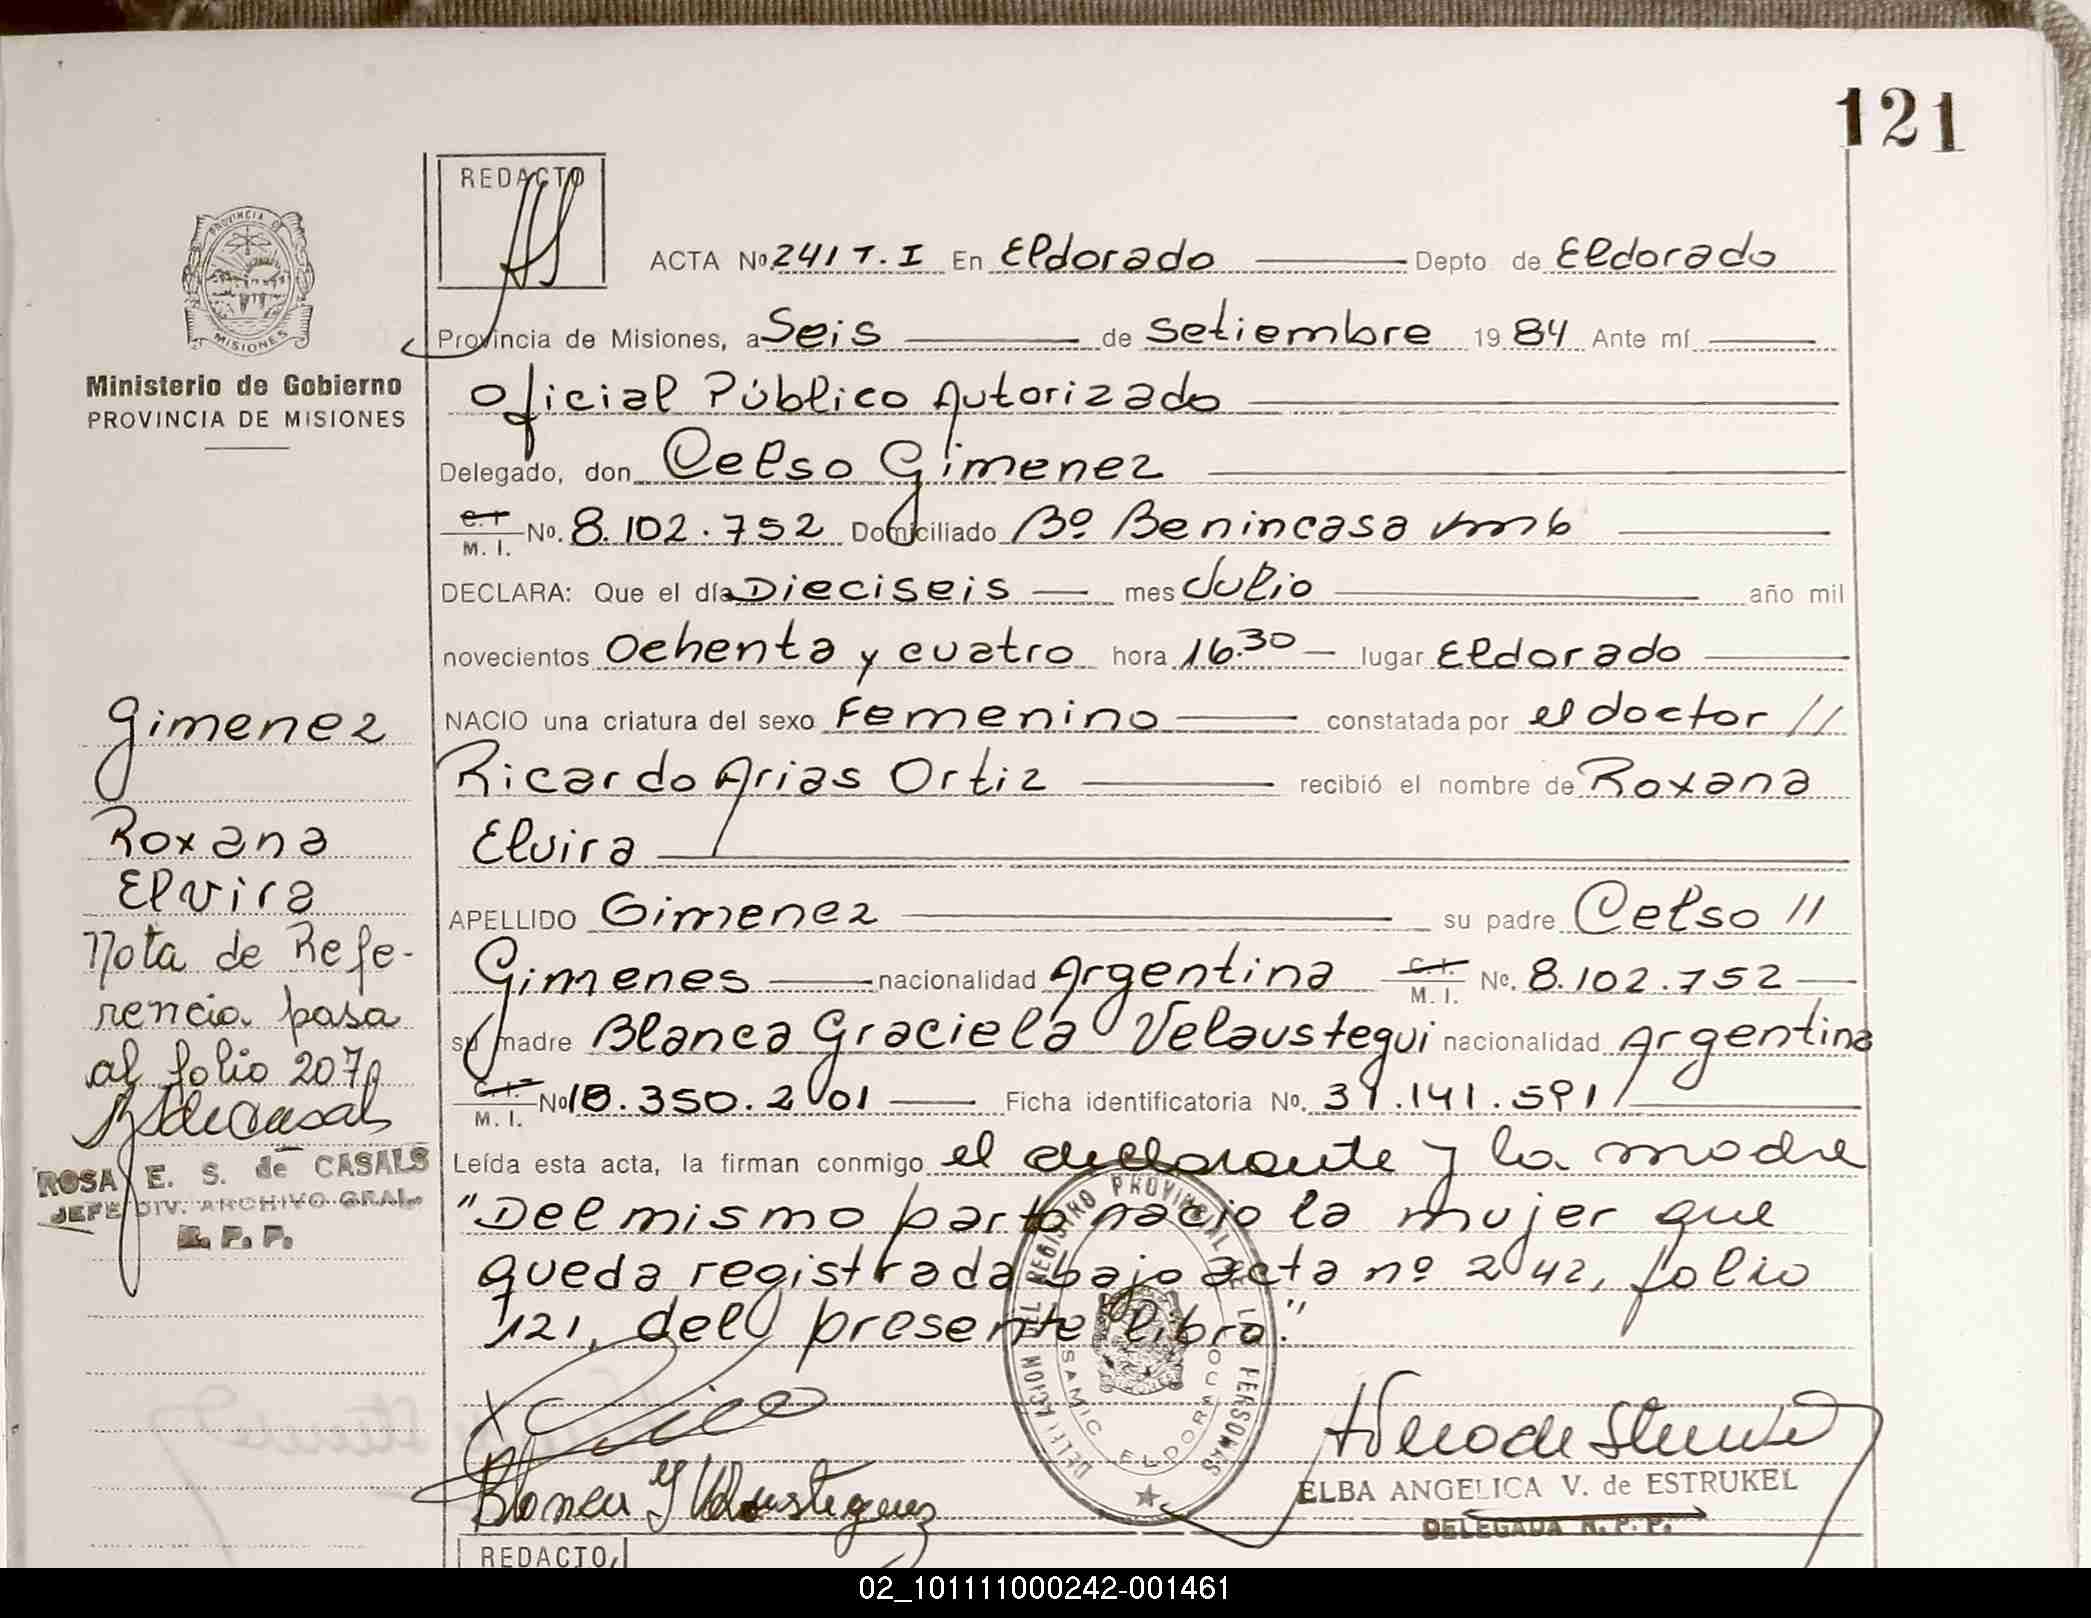 121
REDACTO
ACTA Nº 241 T. I En Eldorado Depto de Eldorado
PROVINCIA DE MISIONES
Provincia de Misiones, a Seis de Setiembre 1984 Ante mí
Ministerio de Gobierno
PROVINCIA DE MISIONES
Oficial Público Autorizado
Delegado, don Celso Gimenez
C. I. M. I. No. 8.102.752 Domiciliado Bº Benincasa
DECLARA: Que el día Dieciseis mes Julio año mil
novecientos Ochenta y cuatro hora 16.30 lugar Eldorado
NACIO una criatura del sexo Femenino constatada por el doctor //
Ricardo Arias Ortiz recibió el nombre de Roxana
Elvira
APELLIDO Gimenez su padre Celso //
Gimenes nacionalidad Argentina C. I. M. I. No. 8.102.752
su madre Blanca Graciela Velaustegui nacionalidad Argentina
C. I. M. I. No 18.350.201 Ficha identificatoria No. 31.141.591
Leída esta acta, la firman conmigo el declarante y la madre
"Del mismo parto nacio la mujer que
queda registrada bajo acta nº 242, folio
121, del presente libro."
Gimenez
Roxana
Elvira
Nota de Refe-
rencia pasa
al folio 207
ROSA E. S. de CASALS
JEFE DIV. ARCHIVO GRAL.
R. P. P.
DELEGACION DEL REGISTRO PROVINCIAL DE LAS PERSONAS
SAMIC ELDORADO
ELBA ANGELICA V. de ESTRUKEL
DELEGADA R. P. P.
REDACTO
02_101111000242-001461